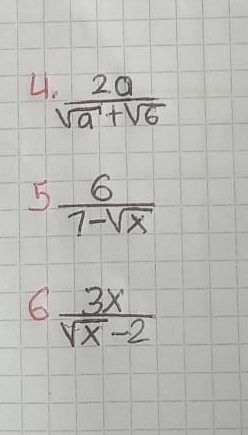 4. 2a
√a + √6
5 6
7 - √x
6 3x
√x - 2